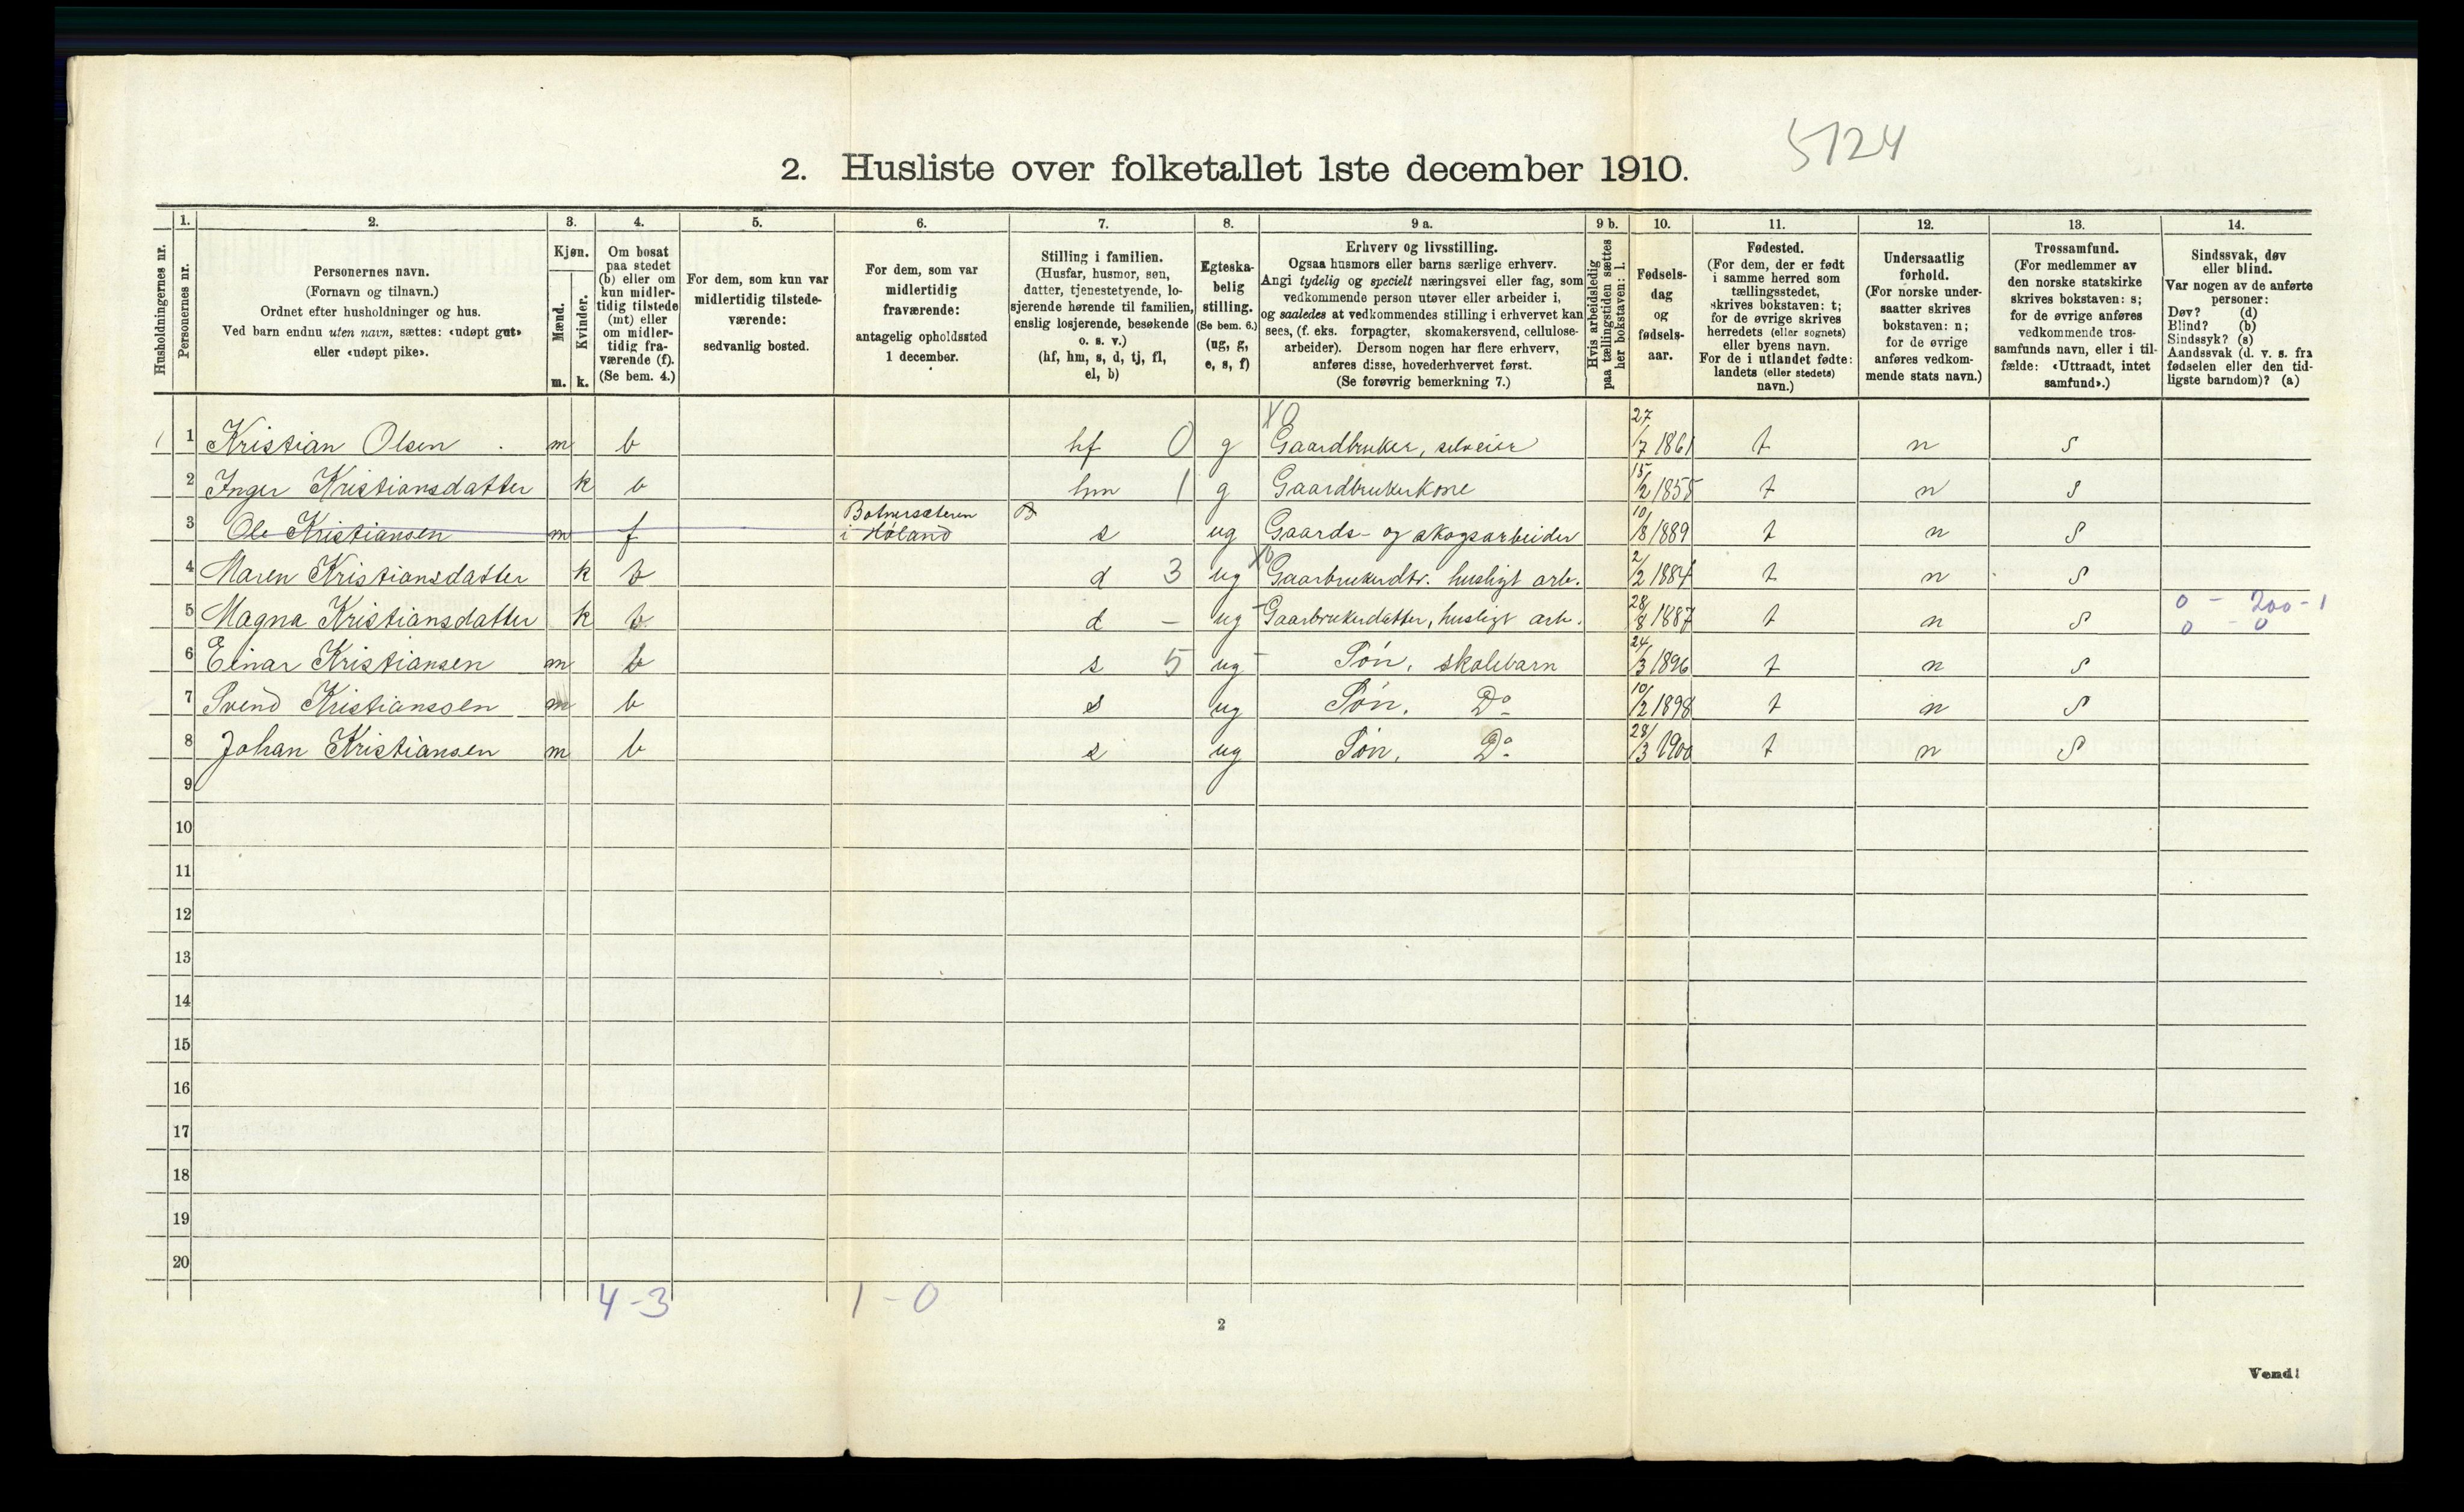 5124
2. Husliste over folketallet 1ste december 1910.
Husholdningernes nr.
1. Personernes nr.
2. Personernes navn.
(Fornavn og tilnavn.)
Ordnet efter husholdninger og hus.
Ved barn endnu uten navn, sættes: «udøpt gut»
eller «udøpt pike».
3. Kjøn.
Mænd. m.
Kvinder. k.
4. Om bosat
paa stedet
(b) eller om
kun midler-
tidig tilstede
(mt) eller
om midler-
tidig fra-
værende (f).
(Se bem. 4.)
5. For dem, som kun var
midlertidig tilstede-
værende:
sedvanlig bosted.
6. For dem, som var
midlertidig
fraværende:
antagelig opholdssted
1 december.
7. Stilling i familien.
(Husfar, husmor, søn,
datter, tjenestetyende, lo-
sjerende hørende til familien,
enslig losjerende, besøkende
o. s. v.)
(hf, hm, s, d, tj, fl,
el, b)
8. Egteska-
belig
stilling.
(Se bem. 6.)
(ug, g,
e, s, f)
9 a. Erhverv og livsstilling.
Ogsaa husmors eller barns særlige erhverv.
Angi tydelig og specielt næringsvei eller fag, som
vedkommende person utøver eller arbeider i,
og saaledes at vedkommendes stilling i erhvervet kan
sees, (f. eks. forpagter, skomakersvend, cellulose-
arbeider). Dersom nogen har flere erhverv,
anføres disse, hovederhvervet først.
(Se forøvrig bemerkning 7.)
9 b. Hvis arbeidsledig
paa tællingstiden sættes
her bokstaven: l.
10. Fødsels-
dag
og
fødsels-
aar.
11. Fødested.
(For dem, der er født
i samme herred som
tællingsstedet,
skrives bokstaven: t;
for de øvrige skrives
herredets (eller sognets)
eller byens navn.
For de i utlandet fødte:
landets (eller stedets)
navn.)
12. Undersaatlig
forhold.
(For norske under-
saatter skrives
bokstaven: n;
for de øvrige
anføres vedkom-
mende stats navn.)
13. Trossamfund.
(For medlemmer av
den norske statskirke
skrives bokstaven: s;
for de øvrige anføres
vedkommende tros-
samfunds navn, eller i til-
fælde: «Uttraadt, intet
samfund».)
14. Sindssvak, døv
eller blind.
Var nogen av de anførte
personer:
Døv? (d)
Blind? (b)
Sindssyk? (s)
Aandssvak (d. v. s. fra
fødselen eller den tid-
ligste barndom)? (a)
1 1 Kristian Olsen m b hf 0 g X0 Gaardbruker, selveier 27/7 1861 t n s
2 Inger Kristiansdatter k b hm 1 g Gaardbrukerkone 15/2 1855 t n s
3 Ole Kristiansen m f Botnersæteren i Høland B s ug Gaards- og skogsarbeider 10/8 1889 t n s
4 Maren Kristiansdatter k b d 3 ug Gaarbrukerdtr. husligt arb. 2/2 1884 t n s
5 Magna Kristiansdatter k b d - ug Gaarbrukerdatter, husligt arb. 28/8 1887 t n s 0 - 200 - 1
0 - 0
6 Einar Kristiansen m b s 5 ug - Søn, skolebarn 24/3 1896 t n s
7 Svend Kristianssen m b s ug Søn. Do 10/2 1898 t n s
8 Johan Kristiansen m b s ug Søn. Do 28/3 1900 t n s
9
10
11
12
13
14
15
16
17
18
19
20
4-3 1-0
2
Vend!